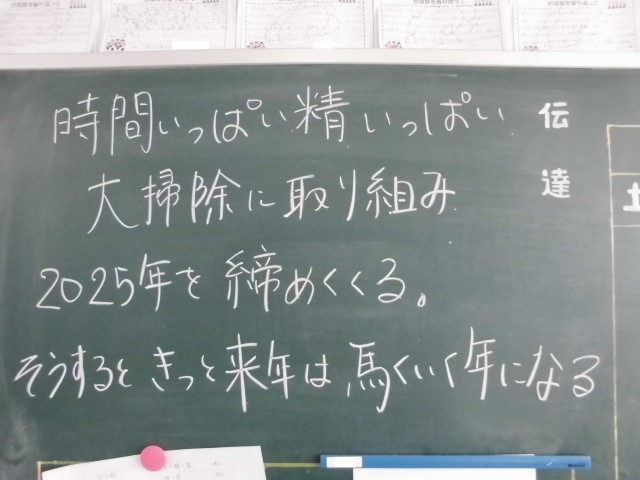 時間いっぱい精いっぱい
大掃除に取り組み
2025年を締めくくる。
そうするときっと来年は馬くいく年になる
伝達
土